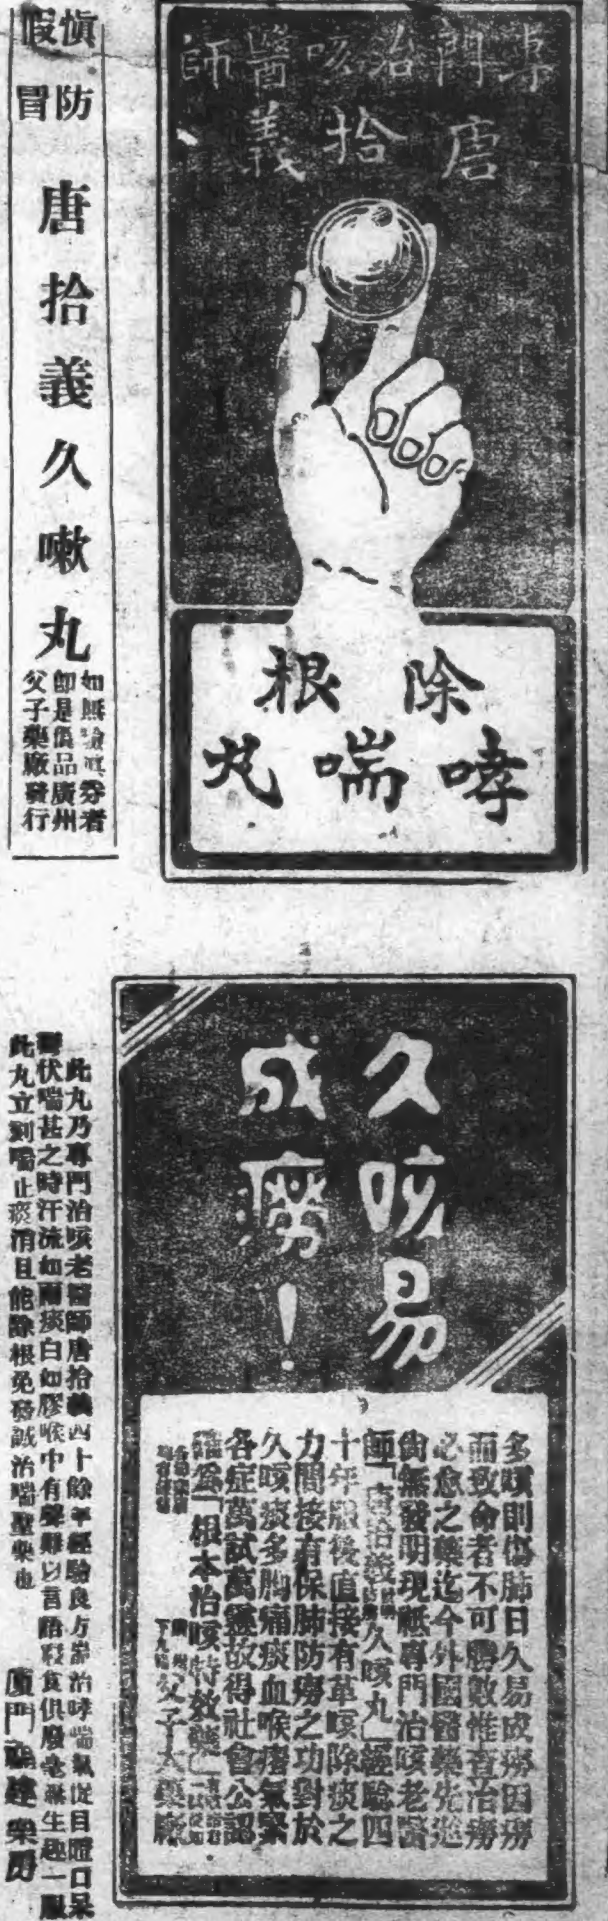 專門治咳醫師
唐拾義
除根
哮喘丸
慎防
假冒
唐拾義久嗽丸
如無驗真券者
即是偽品廣州
父子藥廠發行
久咳易
成癆！
多咳則傷肺日久易成癆因癆
而致命者不可勝數惟查治癆
必愈之藥迄今外國醫藥先進
尚無發明現祗專門治咳老醫
師「唐拾義久咳丸」經驗四
十年服後直接有革咳除痰之
力間接有保肺防癆之功對於
久咳痰多胸痛痰血喉癢氣緊
各症萬試萬靈故得社會公認
為「根本治咳特效藥」
父子大藥廠
此丸乃專門治咳老醫師唐拾義四十餘年經驗良方專治哮喘氣從目瞪口呆
伏喘甚之時汗流如雨痰白如膠喉中有聲難以言語寢食俱廢毫無生趣一服
此丸立刻喘止痰消且能除根免發誠治喘聖藥也
廈門福建藥房